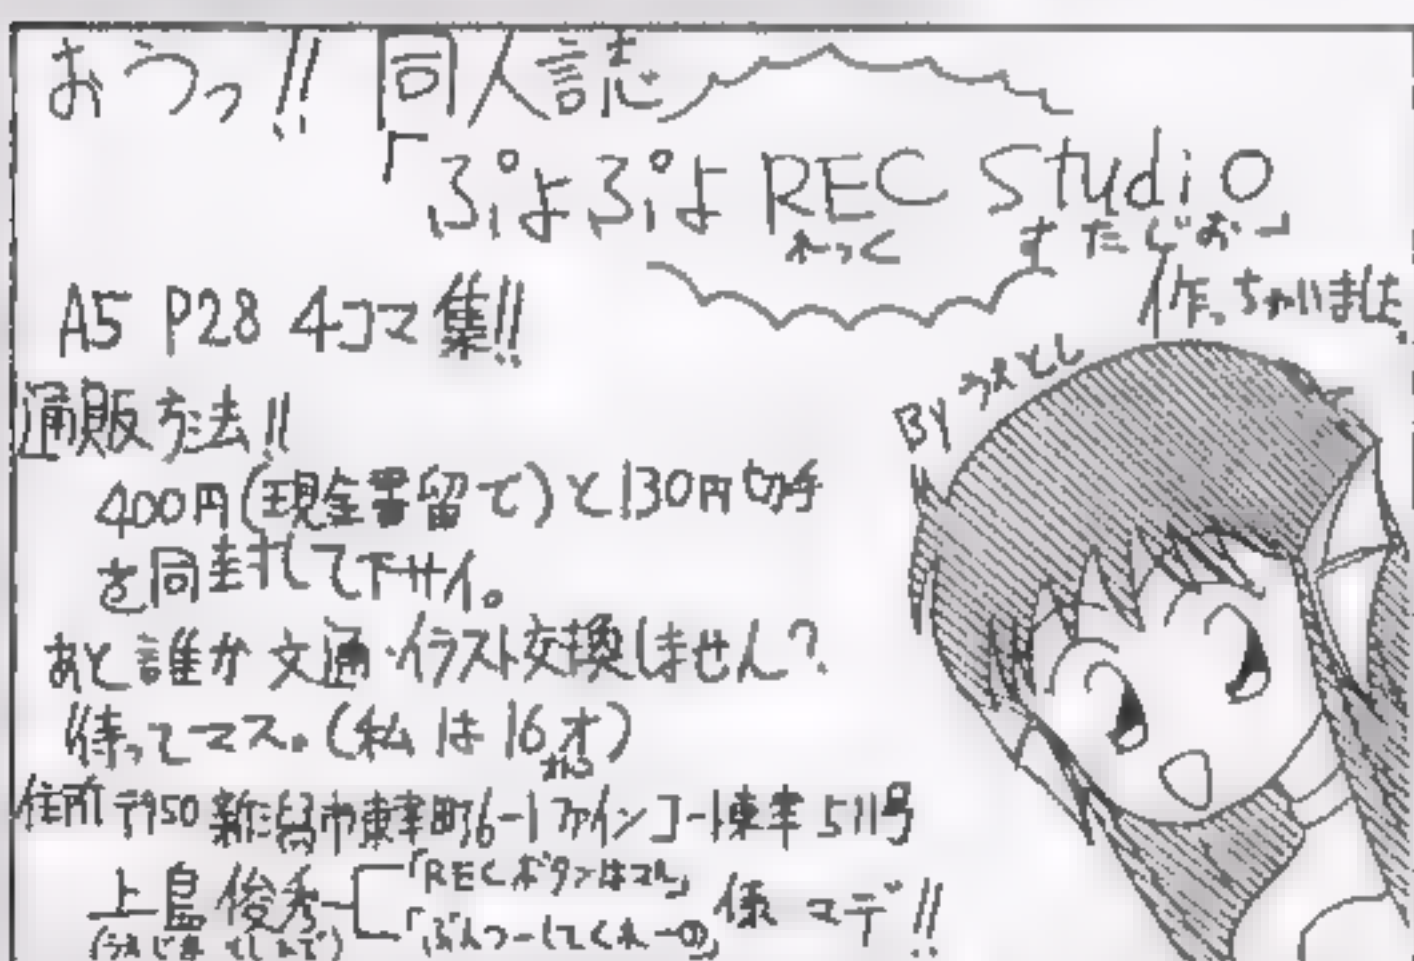 おうっ!! 同人誌
「ぷよぷよ REC Studio」
れっく すたじお
作っちゃいました。
A5 P28 4コマ集!!
By うえとし
通販方法!!
400円(現金書留で)と130円切手
を同封して下サイ。
あと誰か文通・イラスト交換しません?
待ってマス。(私は16才)
住所 〒950 新潟市東幸町6-1ファインコート東幸511号
上島俊秀
(うえじまとしひで)
「RECボタンはコレ」
「ぶんつーしてくれーの」
様マデ!!